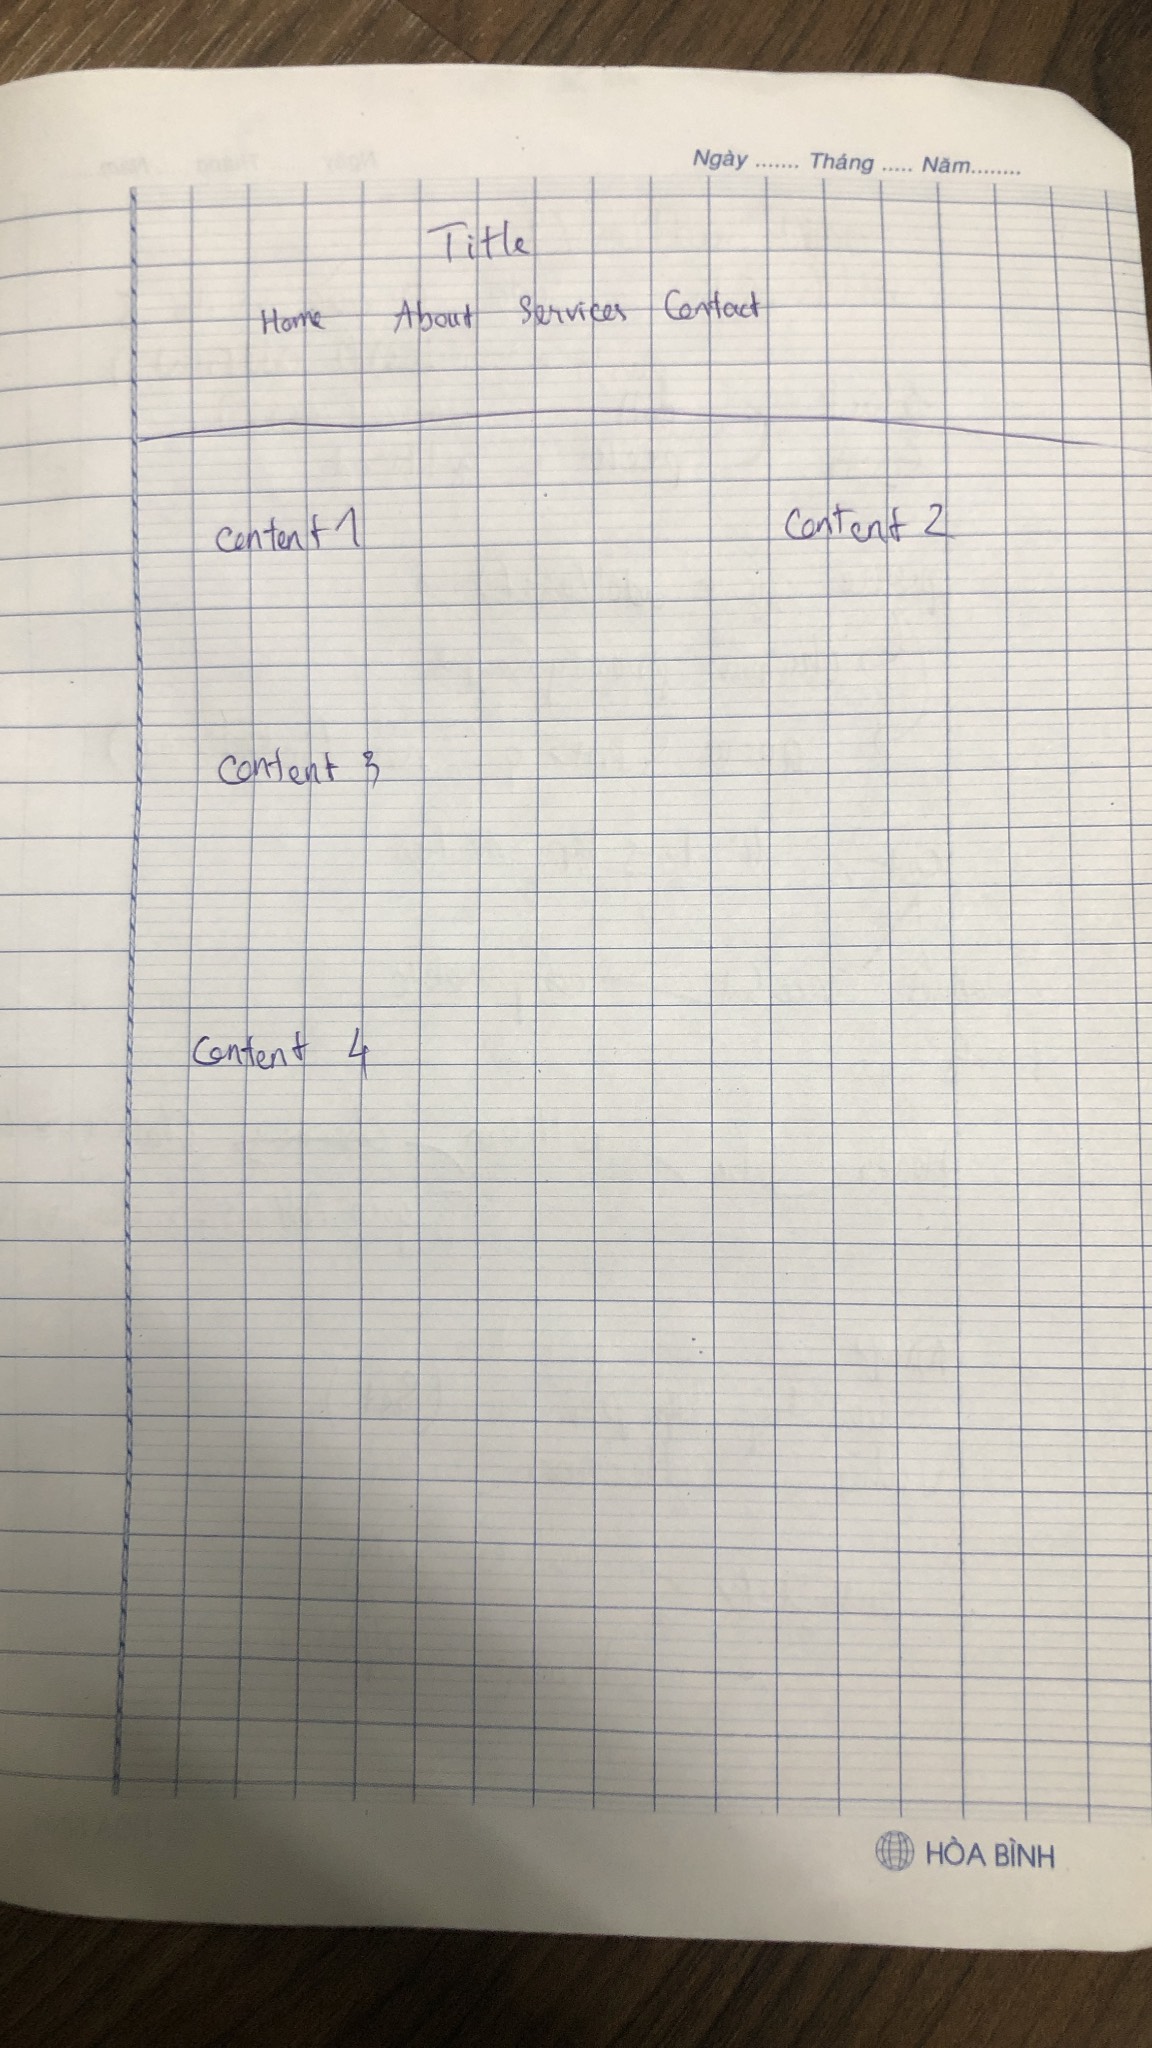 Ngày ....... Tháng ..... Năm........
Title
Home About Services Contact
Content 1 Content 2
Content 3
Content 4
HÒA BÌNH